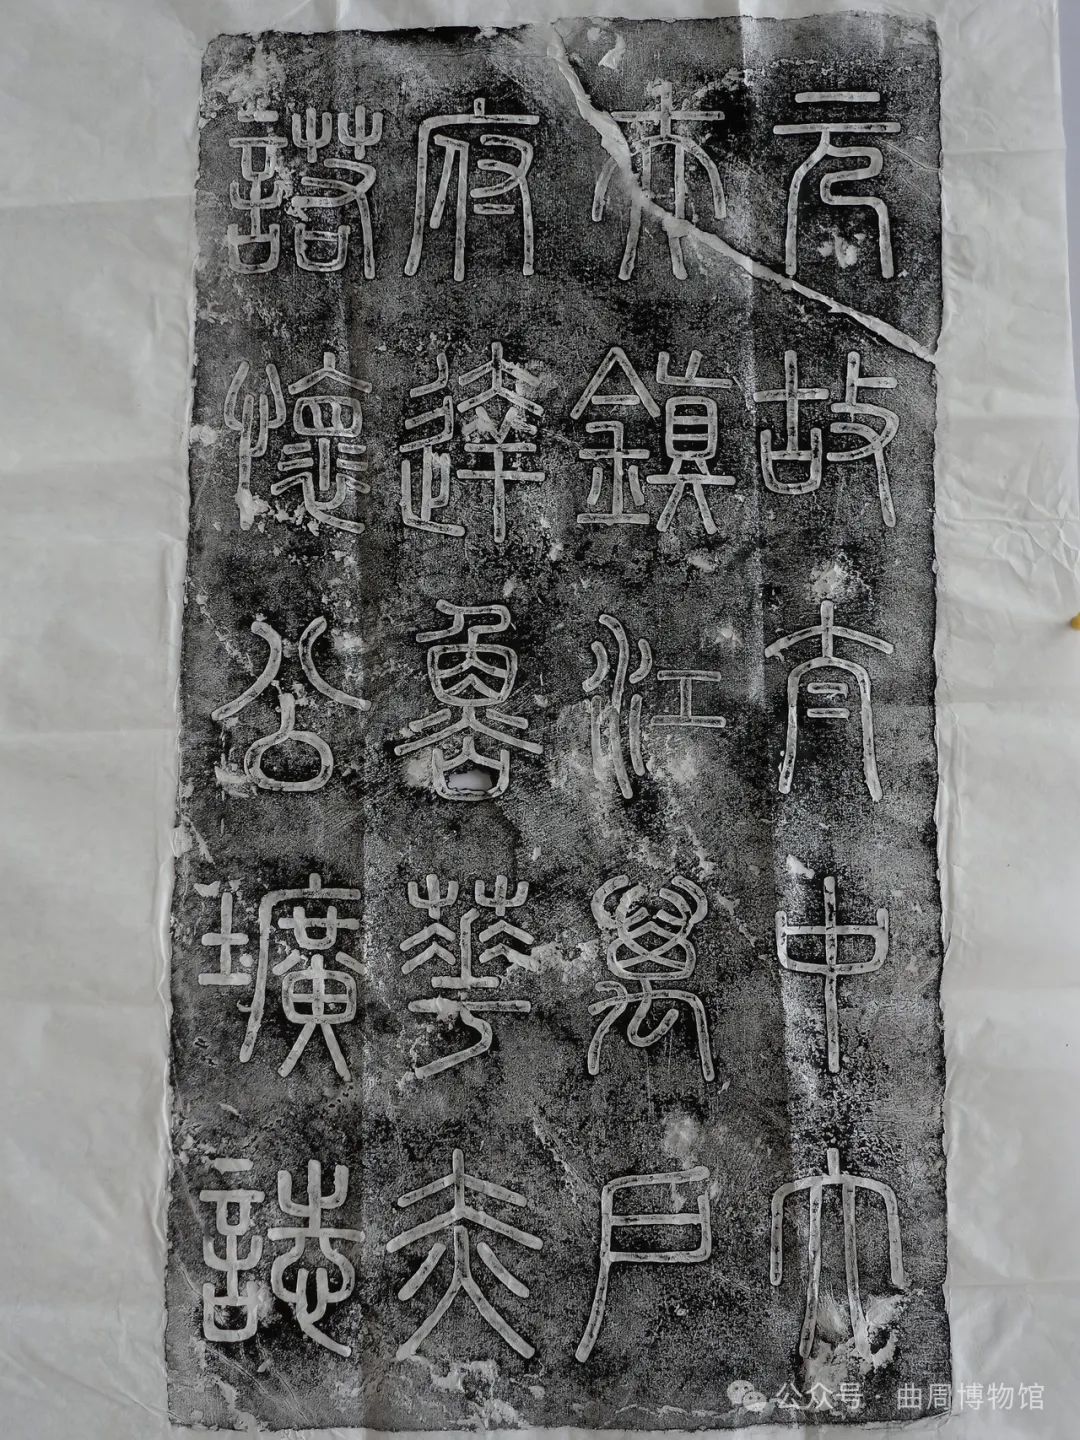 元故太中大
夫鎮江萬戶
府達魯華赤
諾懷公壙誌
公众号 · 曲周博物馆